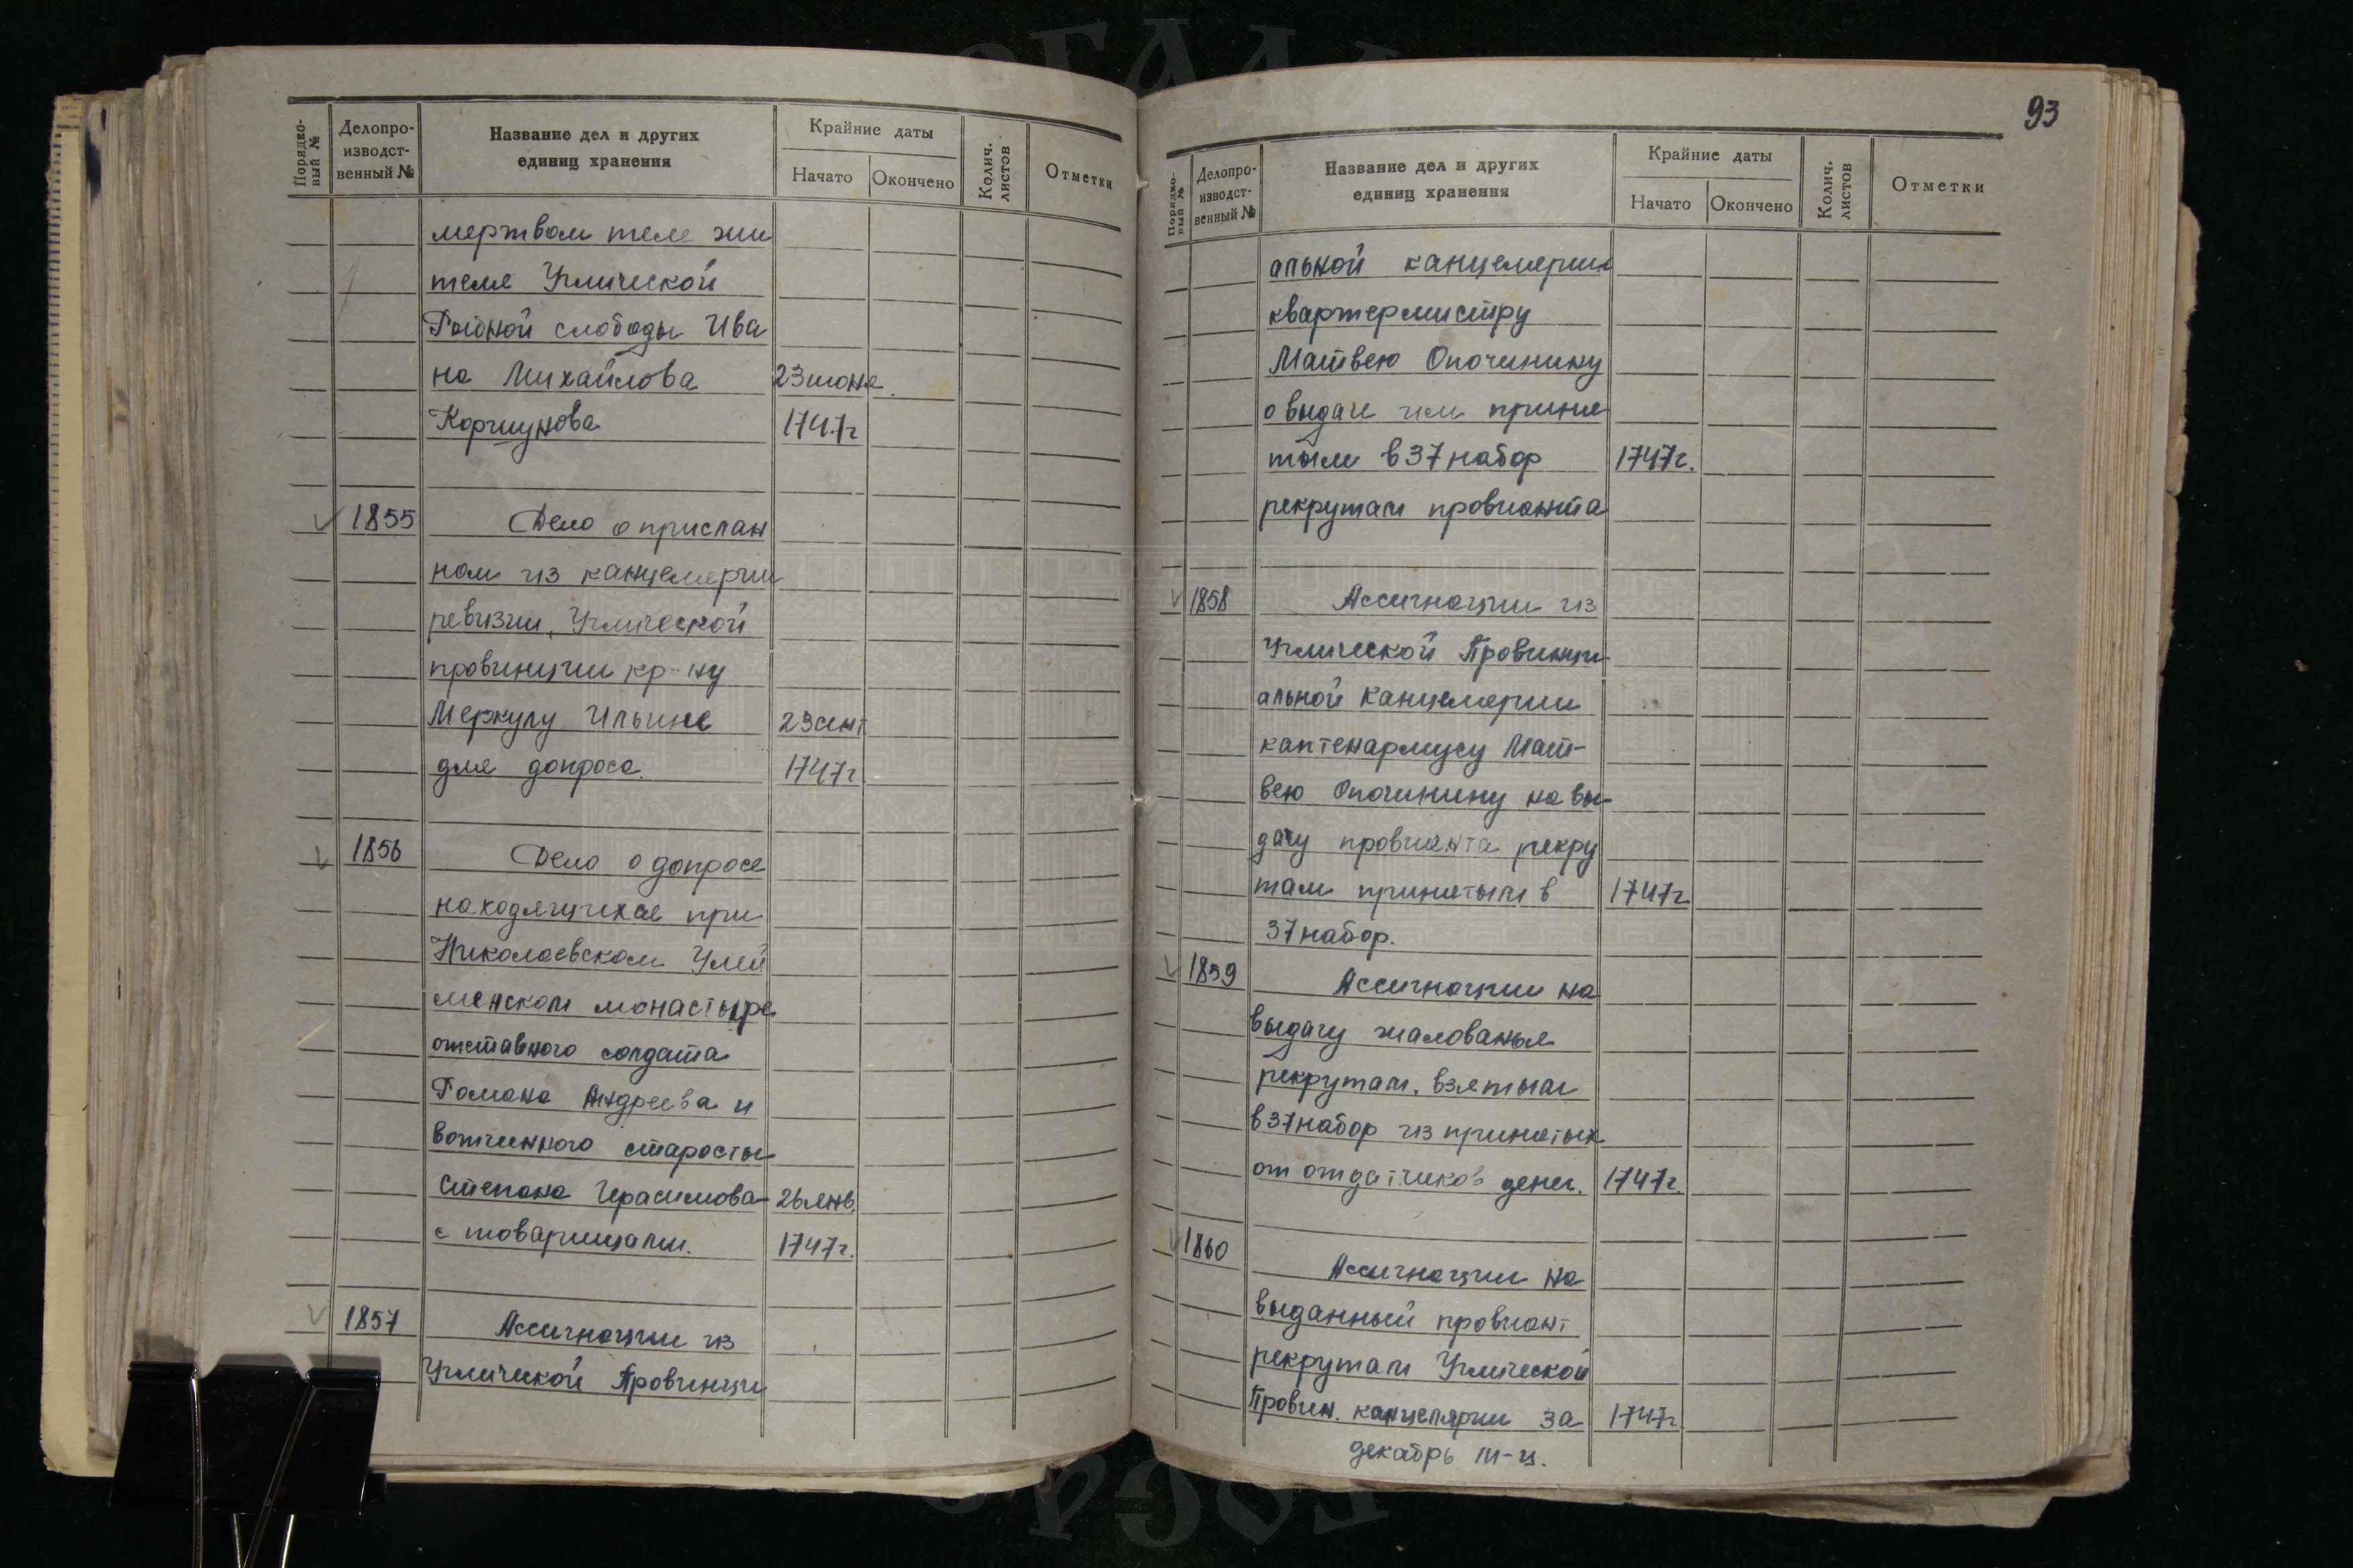 93
Порядко-
вый №
Делопро-
изводст-
венный №
Название дел и других
единиц хранения
Крайние даты
Начато
Окончено
Колич.
листов
Отметки
мертвом теле жи
теля Угличской
Рыбной слободы Ива
на Михайлова 23 июня
Коршунова 1747г
1855 Дело о прислан
ном из канцелярии
ревизии, Угличской
провинции кр-ну
Меркулу Ильине 23 сент
для допроса. 1747г
1856 Дело о допросе
находящихся при
Николаевском Улей
менском монастыре
отставного солдата
Романа Андреева и
вотчинного старосты
Степана Герасимова 26 янв.
с товарищами. 1747г.
1857 Ассигнации из
Угличской Провинци
Порядко-
вый №
Делопро-
изводст-
венный №
Название дел и других
единиц хранения
Крайние даты
Начато
Окончено
Колич.
листов
Отметки
альной канцелярии
квартермистру
Матвею Опочинину
о выдаче им приня
тым в 37 набор 1747г.
рекрутам провианта
1858 Ассигнации из
Угличской Провинци
альной Канцелярии
каптенармусу Мат-
вею Опочинину на вы-
дачу провианта рекру
там принятым в 1747г
37 набор.
1859 Ассигнации на
выдачу жалованья
рекрутам, взятым
в 37 набор из принятых
от отдатчиков денег. 1747г.
1860 Ассигнации на
выданный провиант
рекрутам Угличской
Провин. канцелярии за 1747г
декабрь м-ц.